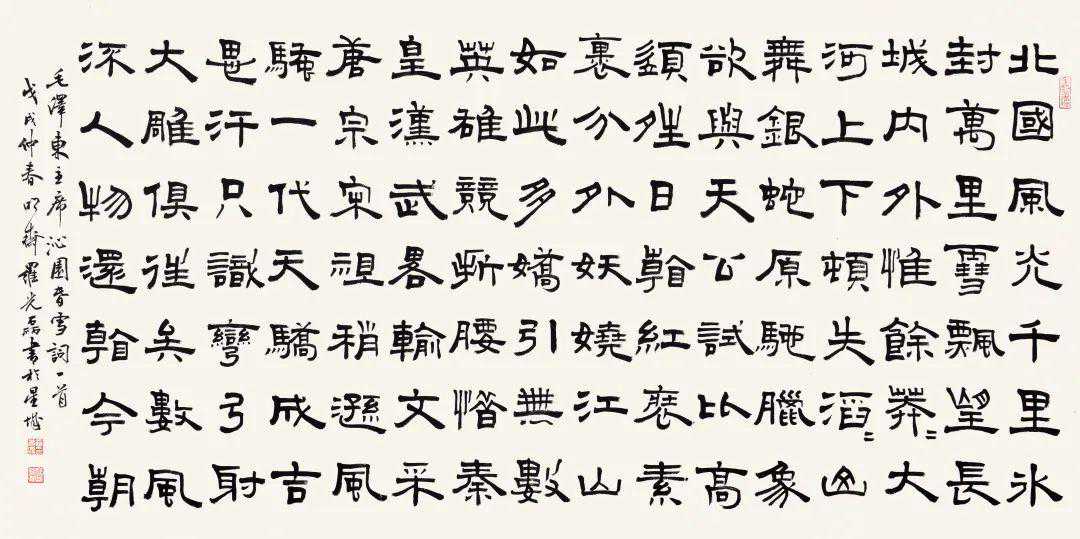 北國風光千里冰
封萬里雪飄望長
城内外惟餘莽〻大
河上下頓失滔〻山
舞銀蛇原馳臘象
欲與天公試比高
須夝日看紅裝素
裹分外妖嬈江山
如此多嬌引無數
英雄競折腰惜秦
皇漢武畧輸文采
唐宗宋祖稍遜風
騷一代天驕成吉
思汗只識彎弓射
大雕俱往矣數風
流人物還看今朝
毛澤東主席沁園春雪詞一首
戊戌仲春明齋羅光磊書於星城